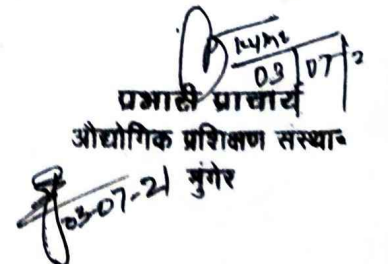 03/07/2
प्रभारी प्राचार्य
औद्योगिक प्रशिक्षण संस्थान
03-07-21 मुंगेर